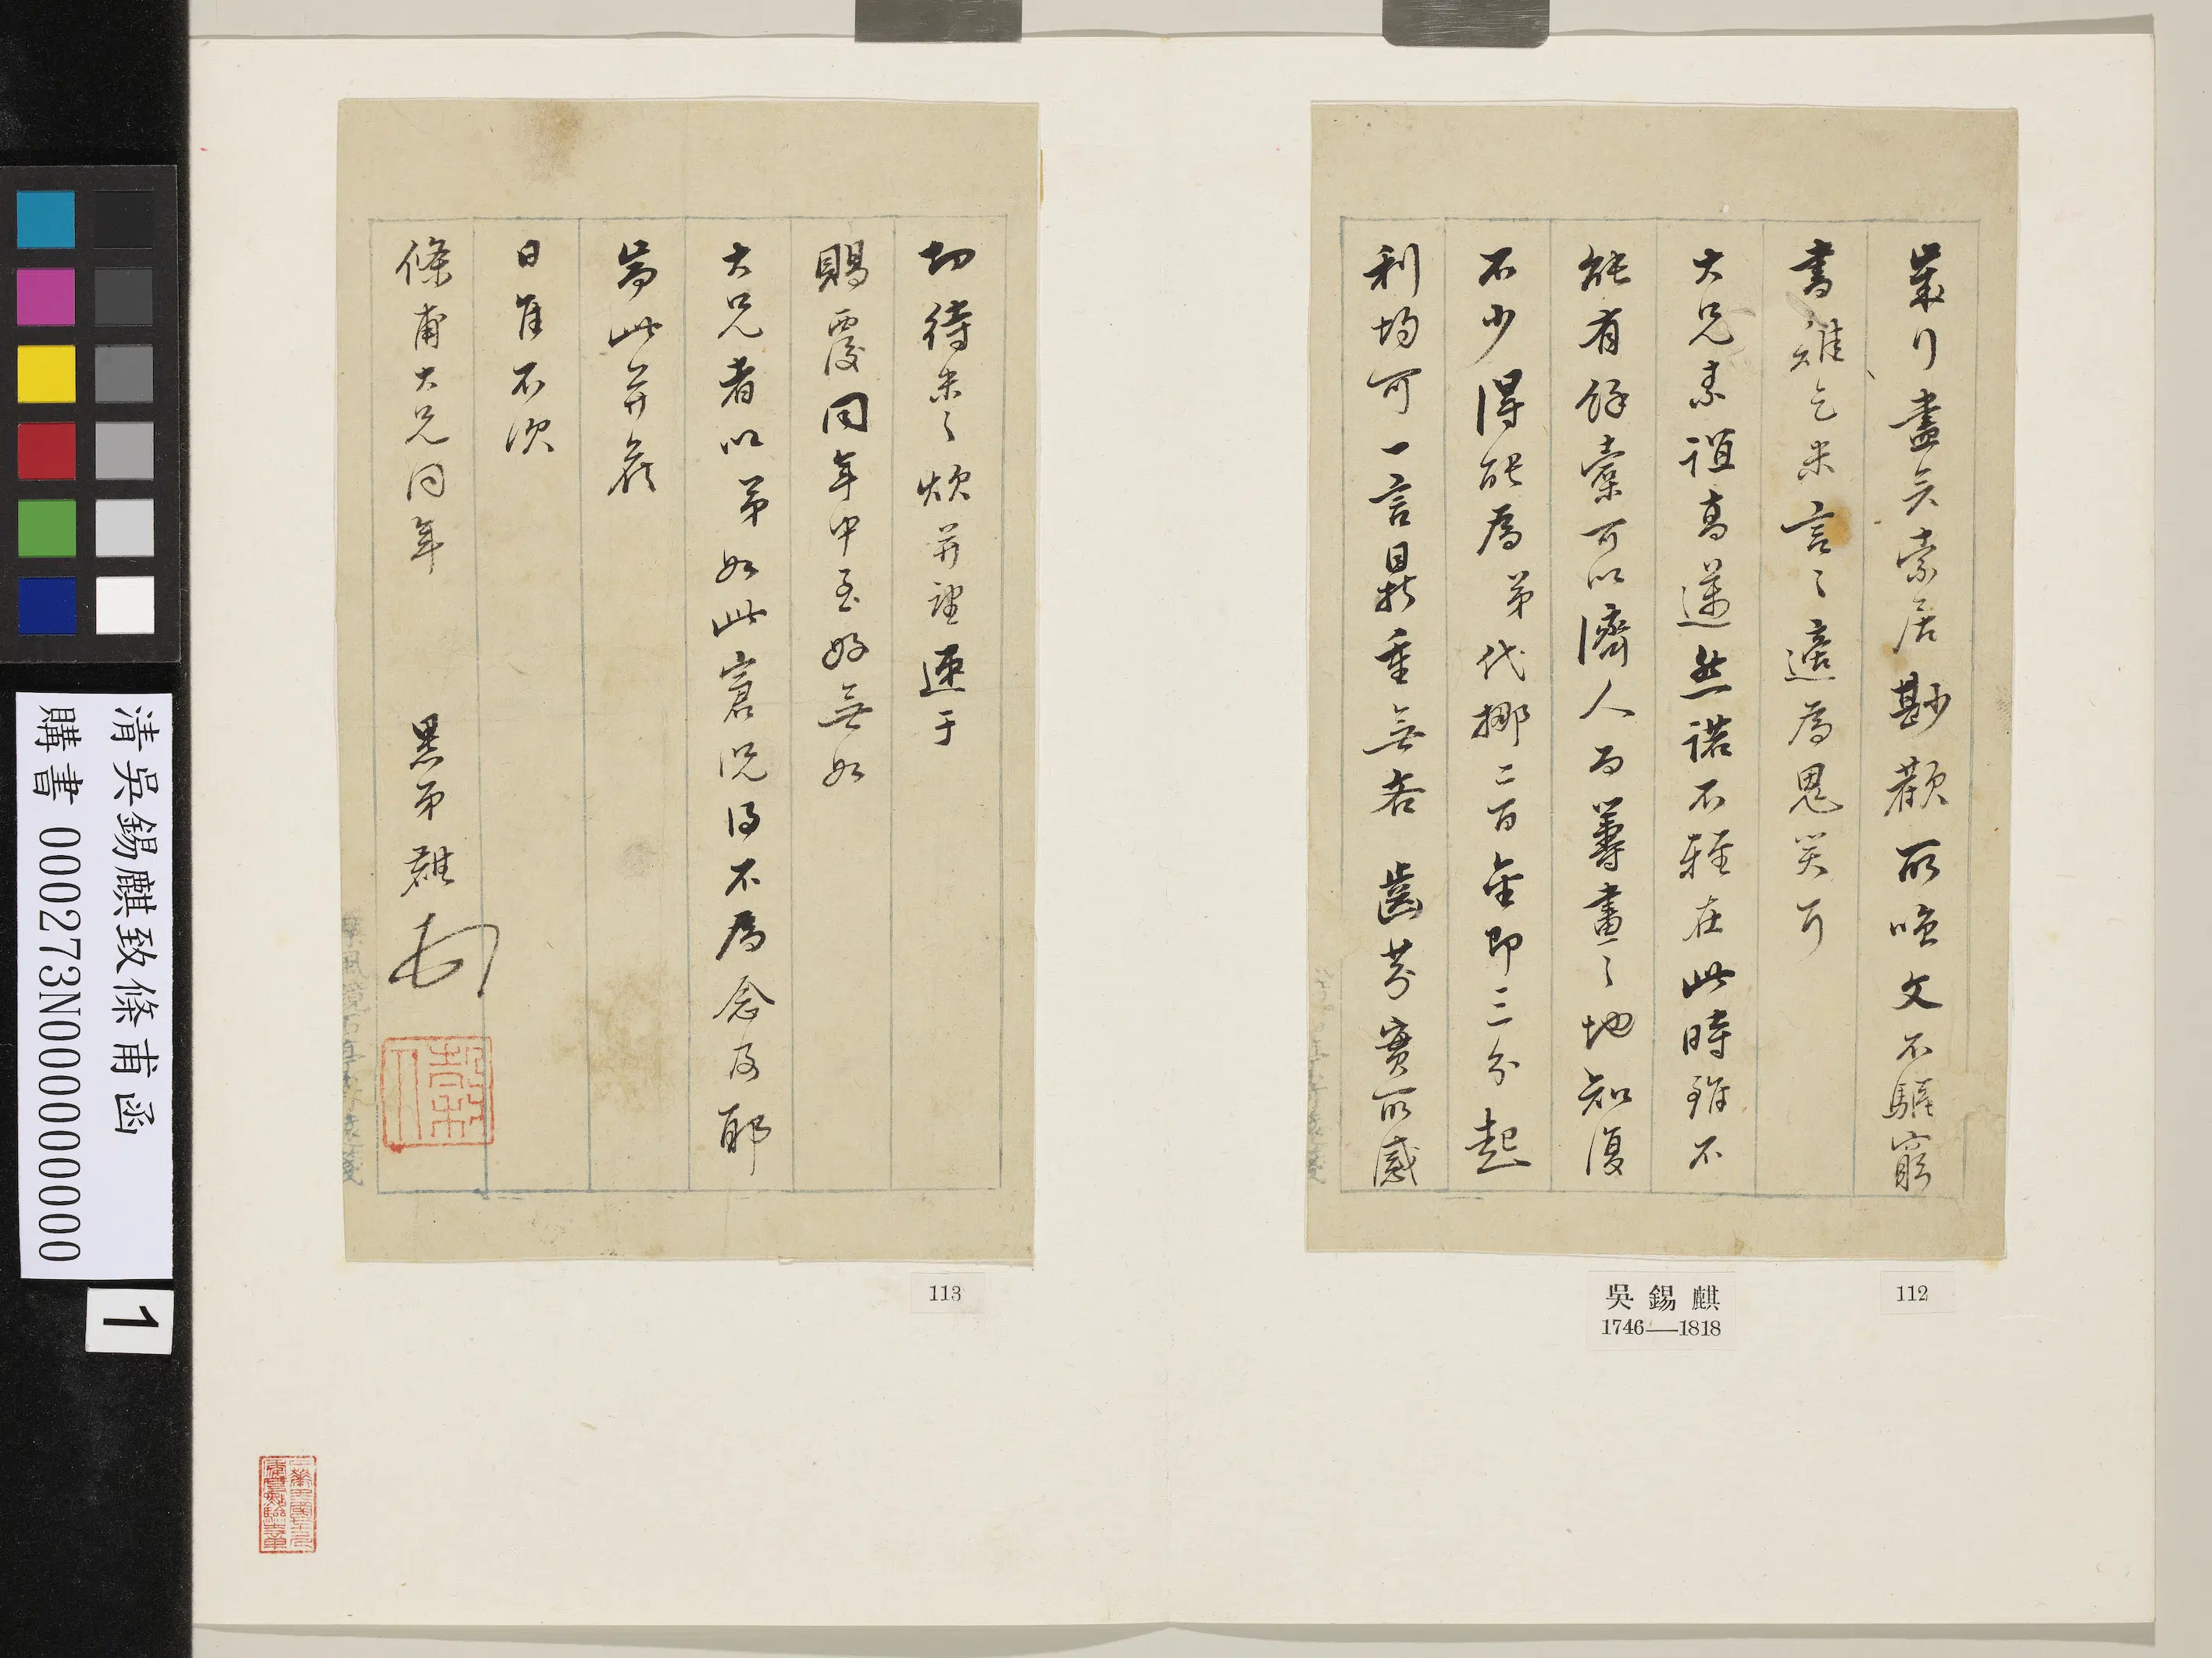 歲行盡矣索居尠歡所唫文不驅窮
書難乞米言之適為鬼笑耳
大兄素誼高邁然諾不輕在此時雖不
能有餘橐可以濟人而籌畫之地知復
不少得能為弟代挪二百金即三分起
利均可一言鼎重無吝齒芬實所感
切待米之炊并望速于
賜覆同年中至好無如
大兄者以弟如此窘況得不為念及耶
耑此并候
日佳不次
條甫大兄同年
愚弟麒
112
吳錫麒
1746—1818
113
清吳錫麒致條甫函
購書 000273N000000000
1